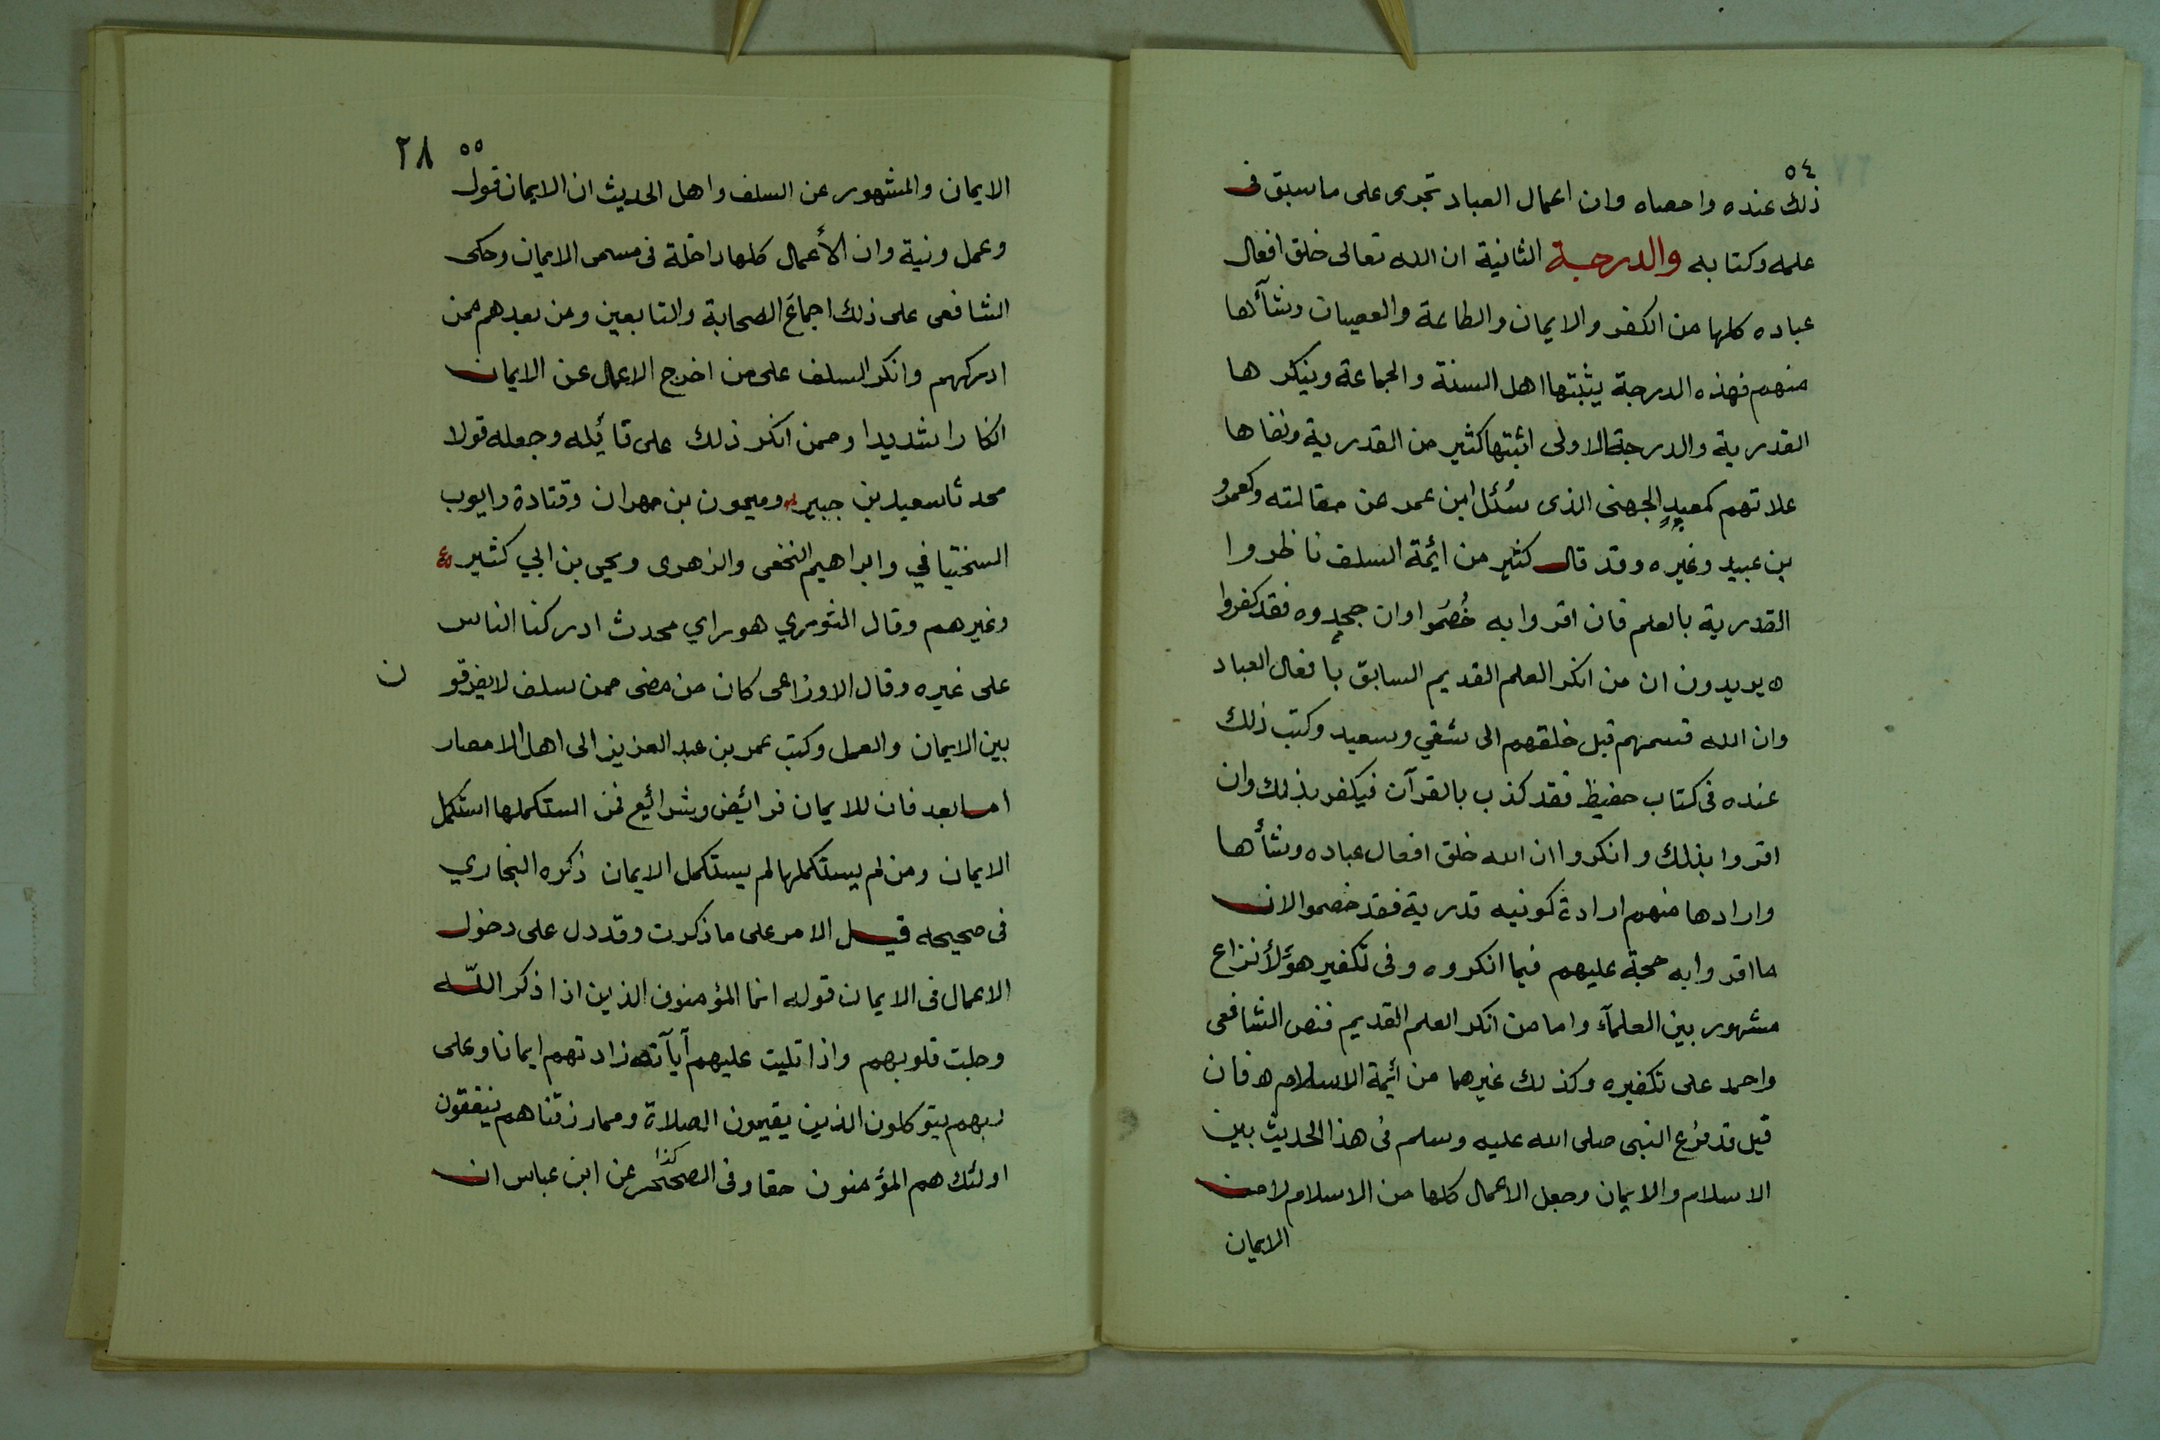 ٥٤
ذلك عنده واحصاه وان اعمال العباد تجرى على ماسبق فى
علمه وكتابه والدرجة الثانية ان الله تعالى خلق افعال
عباده كلها من الكفر والايمان والطاعة والعصيان وشآءها
منهم فهذه الدرجة يثبتها اهل السنة والجماعة وينكرها
القدرية والدرجة الاولى اثبتها كثير من القدرية ونفاها
غلاتهم كمعبد الجهنى الذى سُئل ابن عمر عن مقالته وكعمرو
بن عبيد وغيره وقد قال كثير من ائمة السلف ناظروا
القدرية بالعلم فان اقروا به خُصمُوا وان جحدوه فقد كفروا
ه يريدون ان من انكر العلم القديم السابق بافعال العباد
وان الله قسمهم قبل خلقهم الى شقي وسعيد وكتب ذلك
عنده فى كتاب حفيظ فقد كذب بالقرآن فيكفر بذلك وان
اقروا بذلك وانكروا ان الله خلق افعال عباده وشأها
وارادها منهم ارادة كونيه قدرية فقد خصموا لان
ما اقروا به حجة عليهم فيما انكروه وفى تكفير هؤلأ نزاع
مشهور بين العلمآء واما من انكر العلم القديم فنص الشافعى
واحمد على تكفيره وكذلك غيرهما من ائمة الاسلام ه فان
قيل قد فرع النبى صلى الله عليه وسلم فى هذا الحديث بين
الاسلام والايمان وجعل الاعمال كلها من الاسلام لامن
الايمان
٥٥ ٢٨
الايمان والمشهور عن السلف واهل الحديث ان الايمان قول
وعمل ونية وان الأعمال كلها داخلة فى مسمى الايمان وحكى
الشافعى على ذلك اجماعَ الصحابة والتابعين ومن بعدهم ممن
ادركهم وانكر السلف على من اخرج الاعمال عن الايمان
انكارا شديدا وممن انكر ذلك على قائله وجعله قولا
محدثا سعيد بن جبير وميمون بن مهران وقتادة وايوب
السختياني وابراهيم النخعى والزهرى ويحيى بن ابي كثير
وغيرهم وقال الثوري هو راي محدث ادركنا الناس
على غيره وقال الاوزاعى كان من مضى ممن سلف لايفرقو ن
بين الايمان والعمل وكتب عمر بن عبد العزيز الى اهل الامصار
اما بعد فان للايمان فرائيض وشرائيع فمن استكملها استكمل
الايمان ومن لم يستكملها لم يستكمل الايمان ذكره البخاري
فى صحيحه قيل الامر على ما ذكرت وقد دل على دخول
الاعمال فى الايمان قوله انما المؤمنون الذين اذا ذكر الله
وجلت قلوبهم واذا تليت عليهم آياته زادتهم ايمانا وعلى
ربهم يتوكلون الذين يقيمون الصلاة ومما رزقناهم ينفقون
اولئك هم المؤمنون حقا وفى الصحيحر كذا عن ابن عباس ان